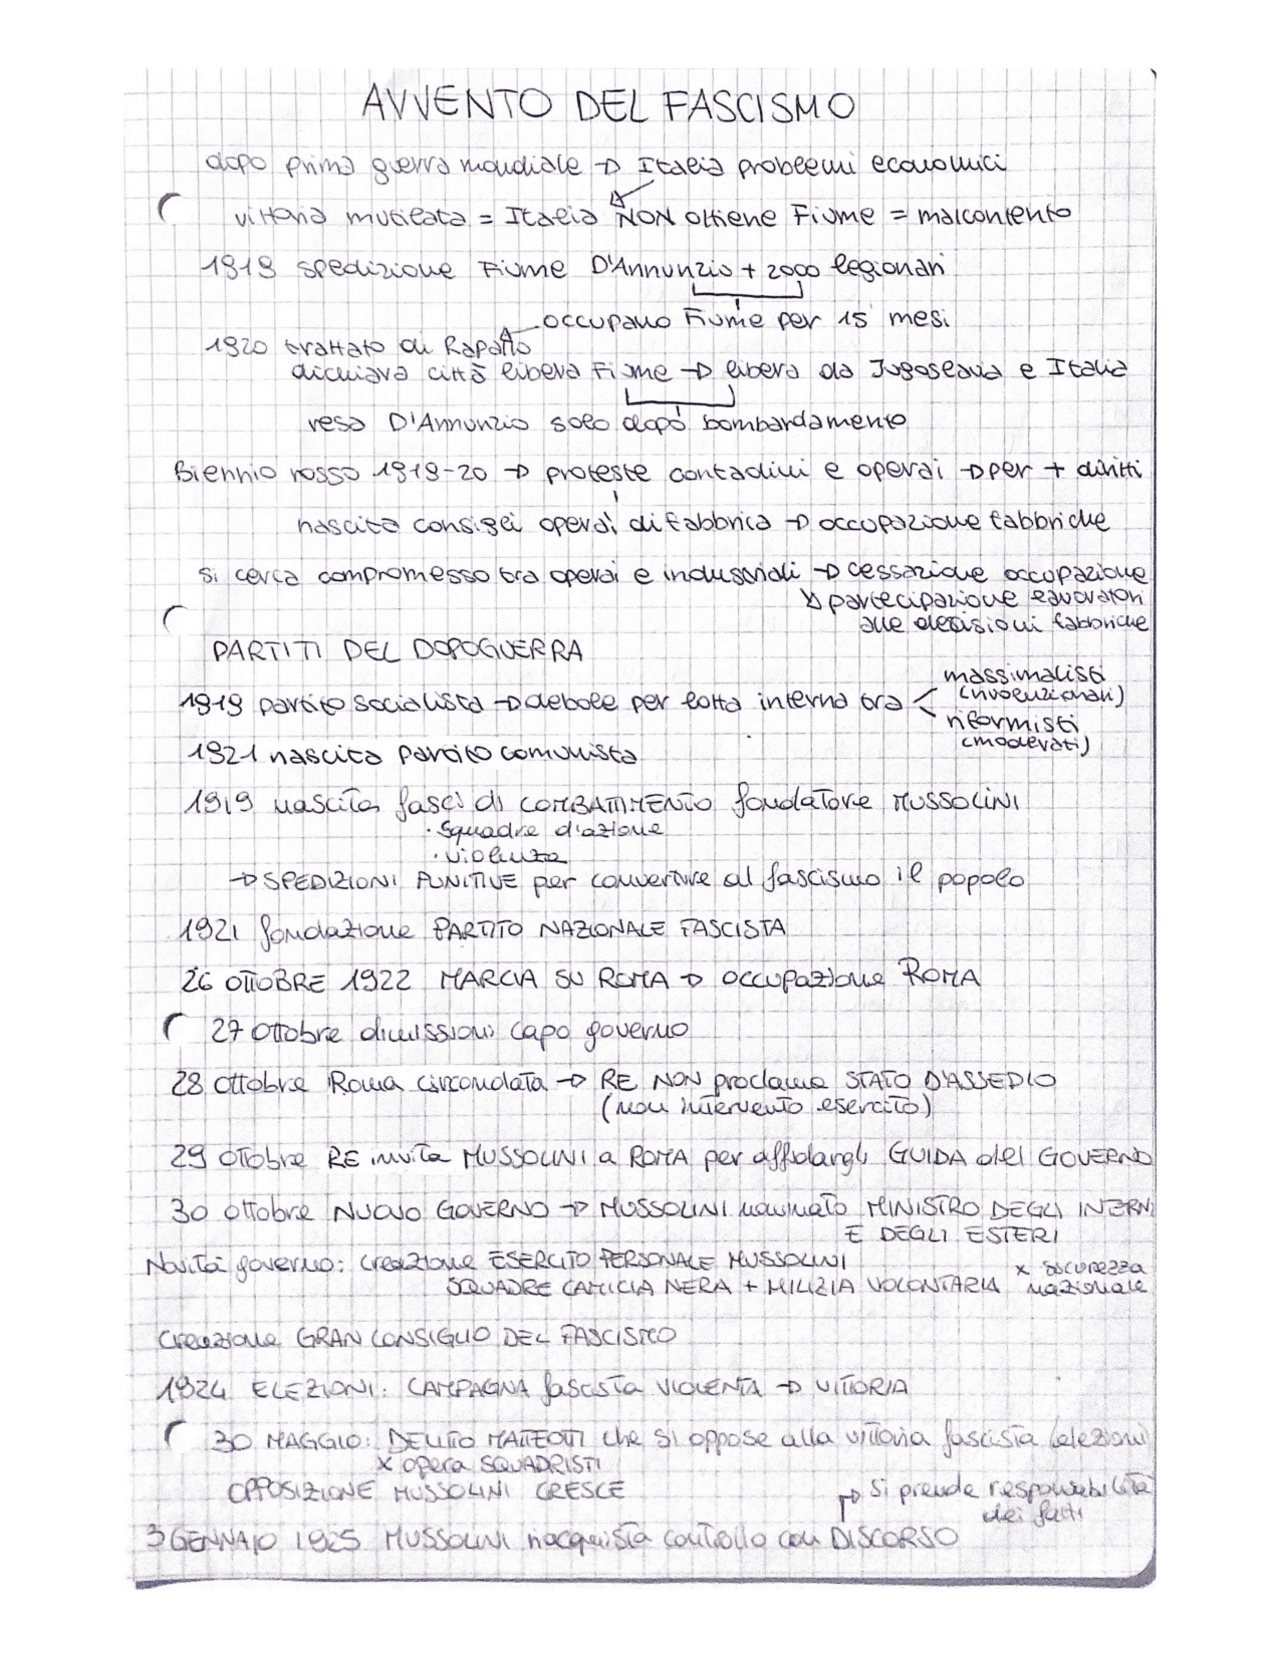 AVVENTO DEL FASCISMO
dopo prima guerra mondiale → Italia problemi economici
vittoria mutilata = Italia NON ottiene Fiume = malcontento
1919 spedizione Fiume D'Annunzio + 2000 legionari
occupano Fiume per 15 mesi
1920 trattato di Rapallo
dichiara città libera Fiume → libera da Jugoslavia e Italia
resa D'Annunzio solo dopo bombardamento
Biennio rosso 1919-20 → proteste contadini e operai → per + diritti
nascita consigli operai di fabbrica → occupazione fabbriche
si cerca compromesso tra operai e industriali → cessazione occupazione
↘ partecipazione lavoratori
alle decisioni fabbriche
PARTITI DEL DOPOGUERRA
massimalisti
(rivoluzionari)
1919 partito socialista → debole per lotta interna tra <
riformisti
(moderati)
1921 nascita partito comunista
1919 nascita fasci di COMBATTIMENTO fondatore MUSSOLINI
· squadre d'azione
· violenza
→ SPEDIZIONI PUNITIVE per convertire al fascismo il popolo
1921 fondazione PARTITO NAZIONALE FASCISTA
26 OTTOBRE 1922 MARCIA SU ROMA → occupazione ROMA
27 ottobre dimissioni capo governo
28 ottobre Roma circondata → RE NON proclama STATO D'ASSEDIO
(non intervento esercito)
29 ottobre RE invita MUSSOLINI a ROMA per affidargli GUIDA del GOVERNO
30 ottobre NUOVO GOVERNO → MUSSOLINI nominato MINISTRO DEGLI INTERNI
E DEGLI ESTERI
Novità governo: creazione ESERCITO PERSONALE MUSSOLINI
SQUADRE CAMICIA NERA + MILIZIA VOLONTARIA x sicurezza nazionale
Creazione GRAN CONSIGLIO DEL FASCISMO
1924 ELEZIONI: CAMPAGNA fascista VIOLENTA → VITTORIA
30 MAGGIO: DELITTO MATTEOTTI che si oppose alla vittoria fascista (elezioni)
x opera SQUADRISTI
OPPOSIZIONE MUSSOLINI CRESCE
→ si prende responsabilità
dei fatti
3 GENNAIO 1925 MUSSOLINI riacquista controllo con DISCORSO